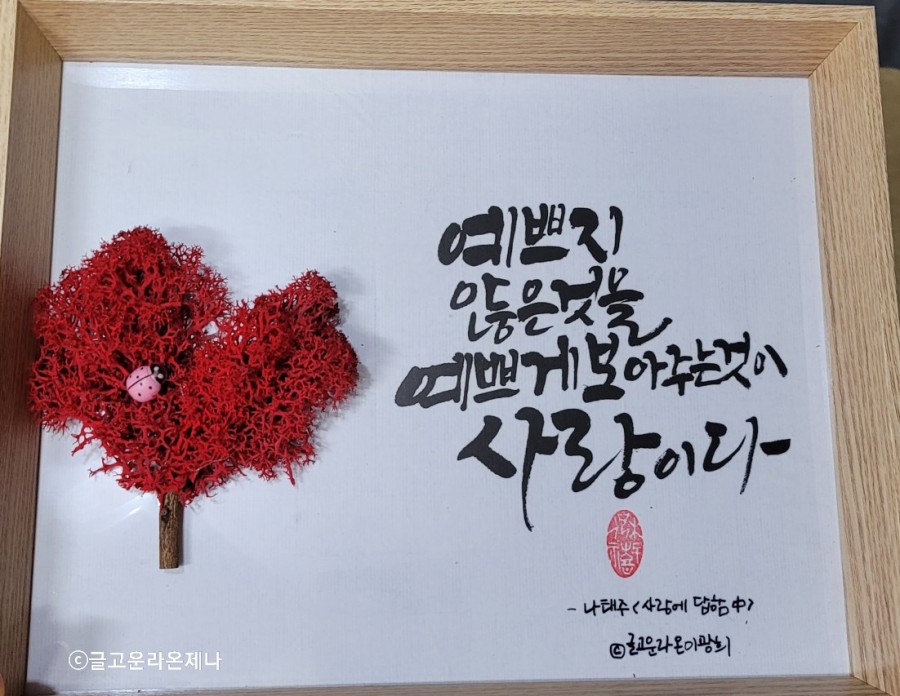 예쁘지
않은것을
예쁘게보아주는것이
사랑이다
- 나태주<사랑에 답함 中>
©글고운라온이광희
©글고운라온제나